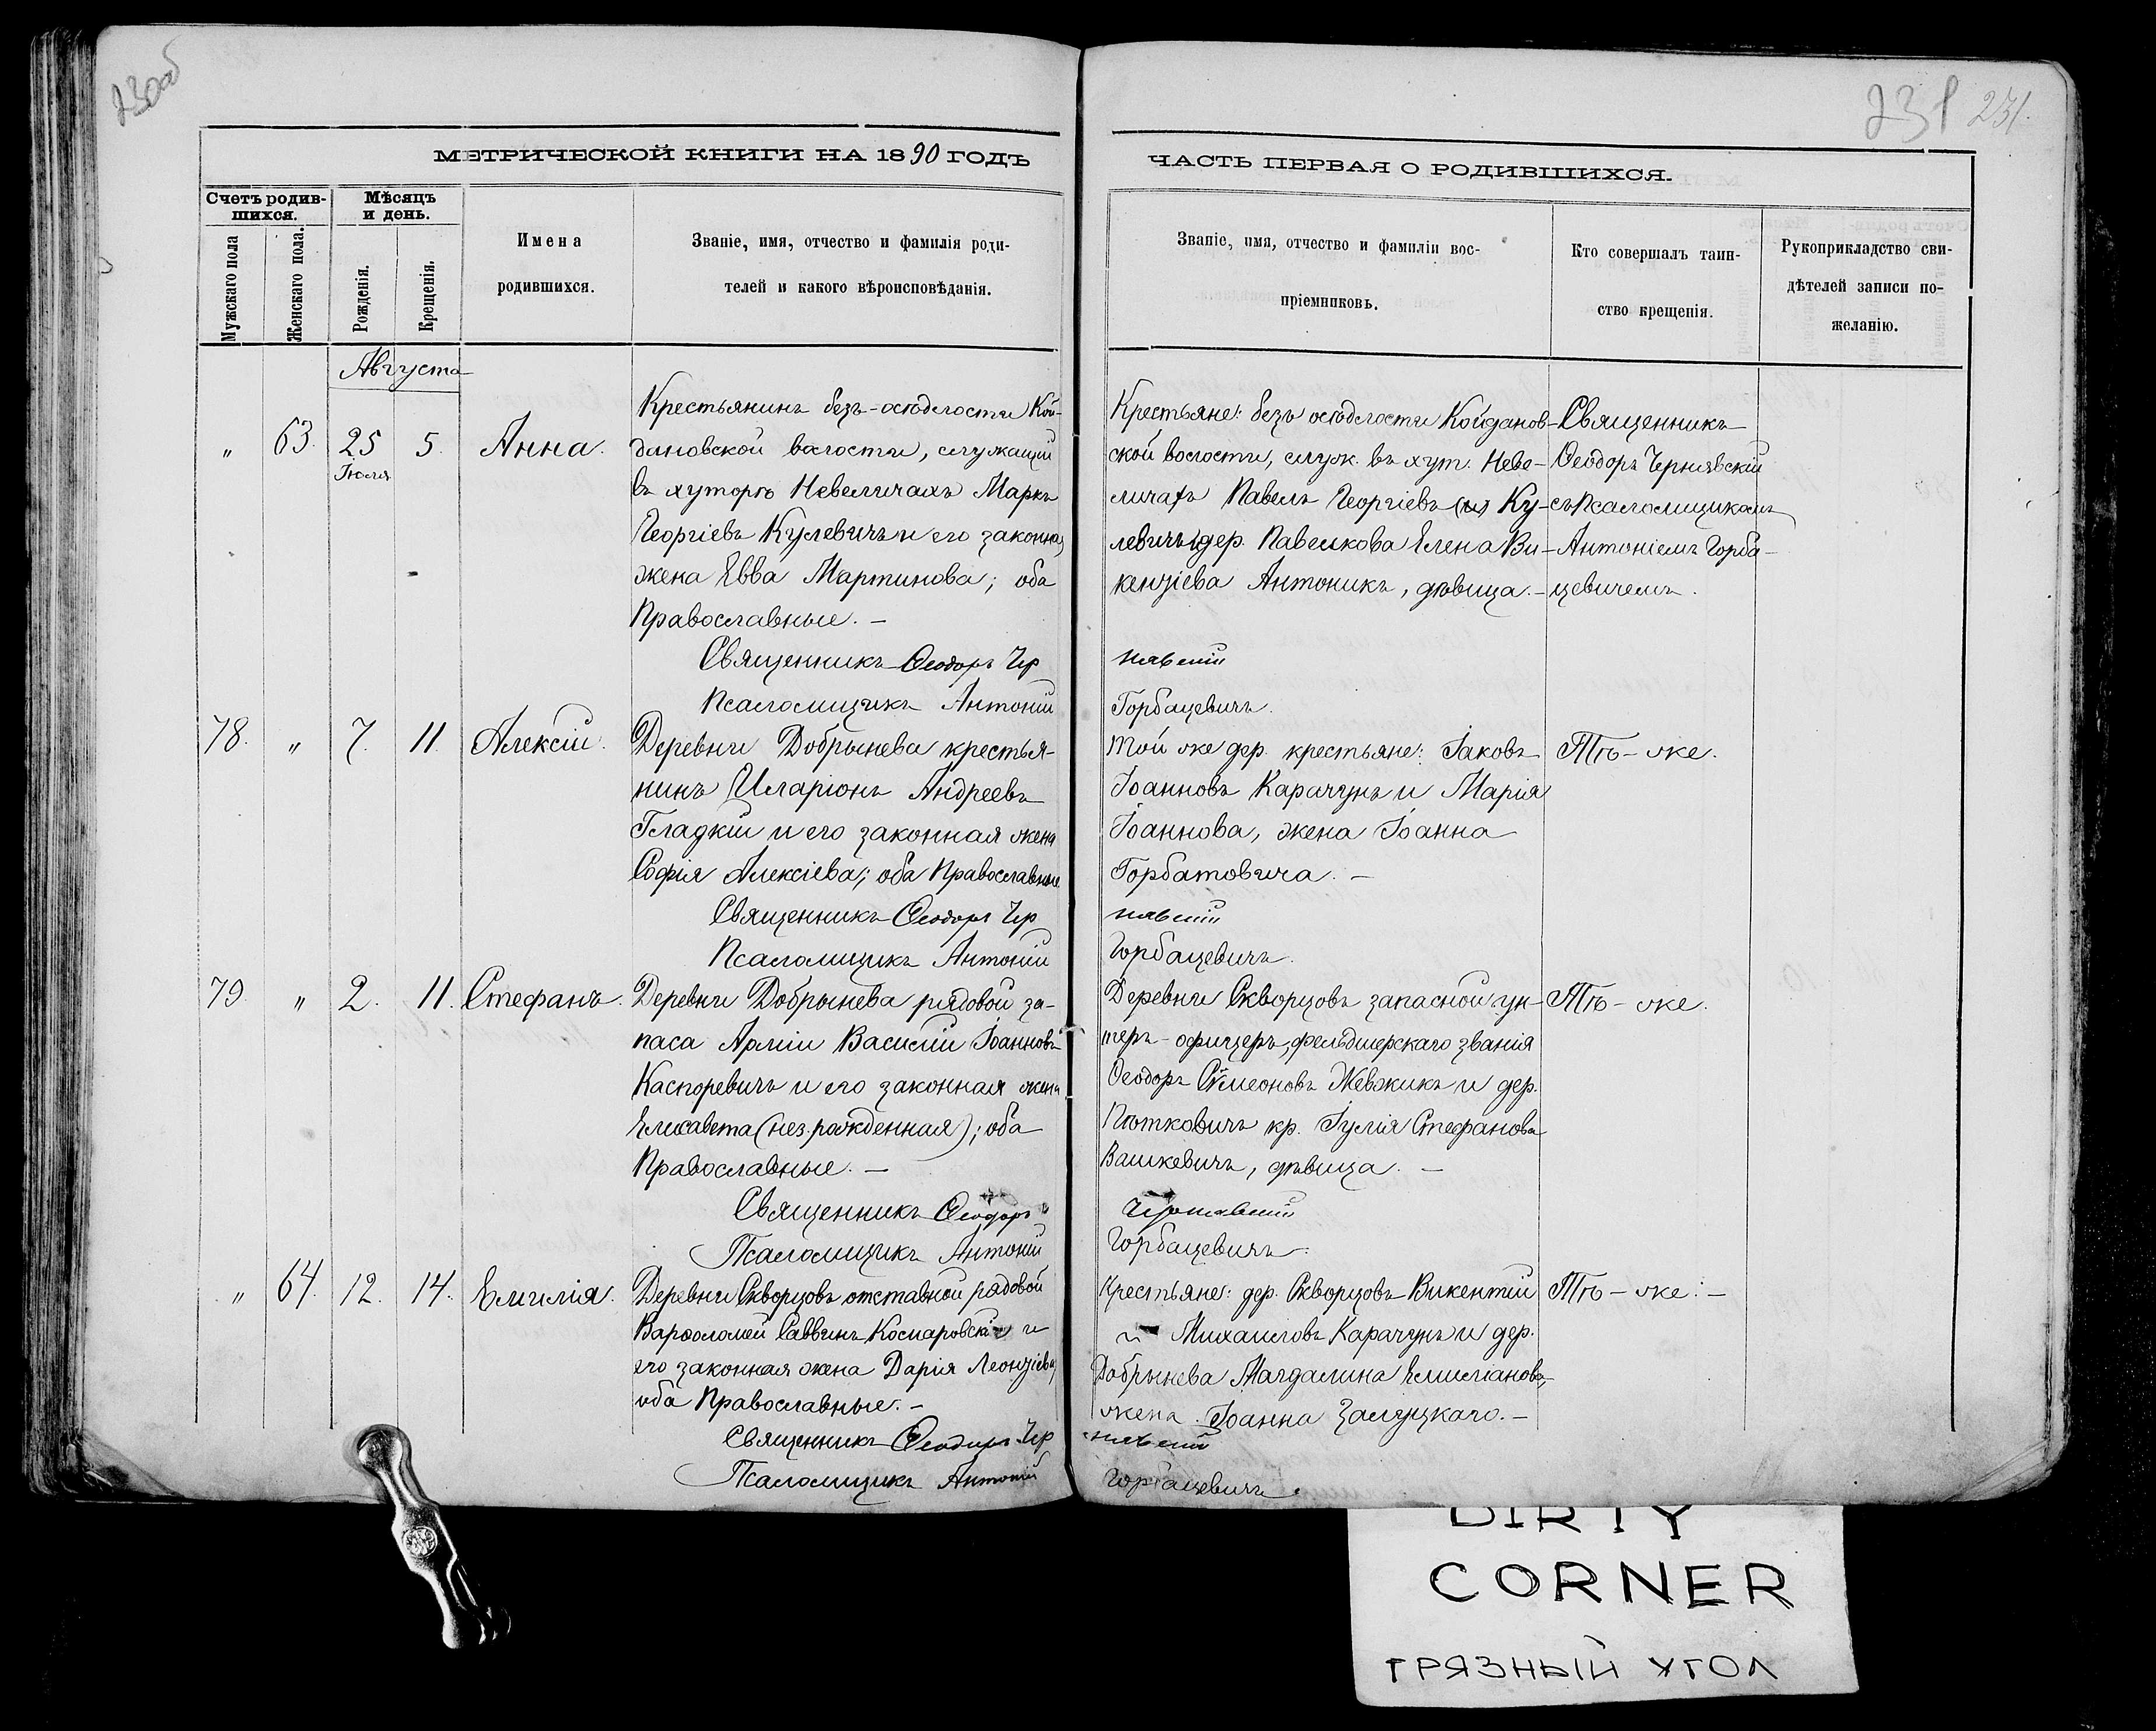 230об
231 231.
МЕТРИЧЕСКОЙ КНИГИ НА 1890 ГОДЪ
ЧАСТЬ ПЕРВАЯ О РОДИВШИХСЯ.
Счетъ родив-
шихся.
Мужскаго пола
Женскаго пола.
Мѣсяцъ
и день.
Рожденія.
Крещенія.
Имена
родившихся.
Званіе, имя, отчество и фамилія роди-
телей и какого вѣроисповѣданія.
Званіе, имя, отчество и фамиліи вос-
пріемниковъ.
Кто совершалъ таин-
ство крещенія.
Рукоприкладство сви-
дѣтелей записи по-
желанію.
Августа
„ 63. 25 Іюля 5. Анна.
Крестьянинъ безъ-осѣдлости Кой-
дановской волости, служащій
въ хуторѣ Невеличахъ Маркъ
Георгіевъ Кулевичъ и его законная
жена Евва Мартинова; оба
Православные. —
Крестьяне: безъ осѣдлости Койданов-
ской волости, служ. въ хут. Неве-
личахъ Павелъ Георгіевъ (и) Ку-
левичъ и дер. Павелкова Елена Ви-
кенціева Антоникъ, дѣвица. —
Священникъ
Ѳеодоръ Чернявскій
съ Псаломщикомъ
Антоніемъ Горба-
цевичемъ.
Священникъ Ѳеодоръ Чернявскій
Псаломщикъ Антоній Горбацевичъ.
78. „ 7. 11. Алексій.
Деревни Добрынева крестья-
нинъ Иларіонъ Андреевъ
Гладкій и его законная жена
Софія Алексіева; оба Православные
Той же дер. крестьяне: Іаковъ
Іоанновъ Карачунъ и Марія
Іоаннова, жена Іоанна
Горбатовича. —
Тѣ-же.
Священникъ Ѳеодоръ Чернявскій
Псаломщикъ Антоній Горбацевичъ.
79. „ 2. 11. Стефанъ.
Деревни Добрынева рядовой за-
паса Арміи Василій Іоанновъ
Каспоревичъ и его законная жена
Елисавета (нез.рожденная); оба
Православные. —
Деревни Скворцовъ запасной ун-
теръ-офицеръ, фельдшерскаго званія
Ѳеодоръ Симеоновъ Жевжикъ и дер.
Пѣтковичъ кр. Іулія Стефанова
Вашкевичъ, дѣвица. —
Тѣ-же.
Священникъ Ѳеодоръ Чернявскій
Псаломщикъ Антоній Горбацевичъ.
„ 64. 12. 14. Емилія.
Деревни Скворцовъ отставной рядовой
Варѳоломей Саввинъ Комаровскій и
его законная жена Дарія Леонціева,
оба Православные. —
Крестьяне: дер. Скворцовъ Викентій
Михаиловъ Карачунъ и дер.
Добрынева Магдалина Емиліанова,
жена Іоанна Залуцкаго. —
Тѣ-же: —
Священникъ Ѳеодоръ Чернявскій
Псаломщикъ Антоній Горбацевичъ.
DIRTY
CORNER
ГРЯЗНЫЙ УГОЛ